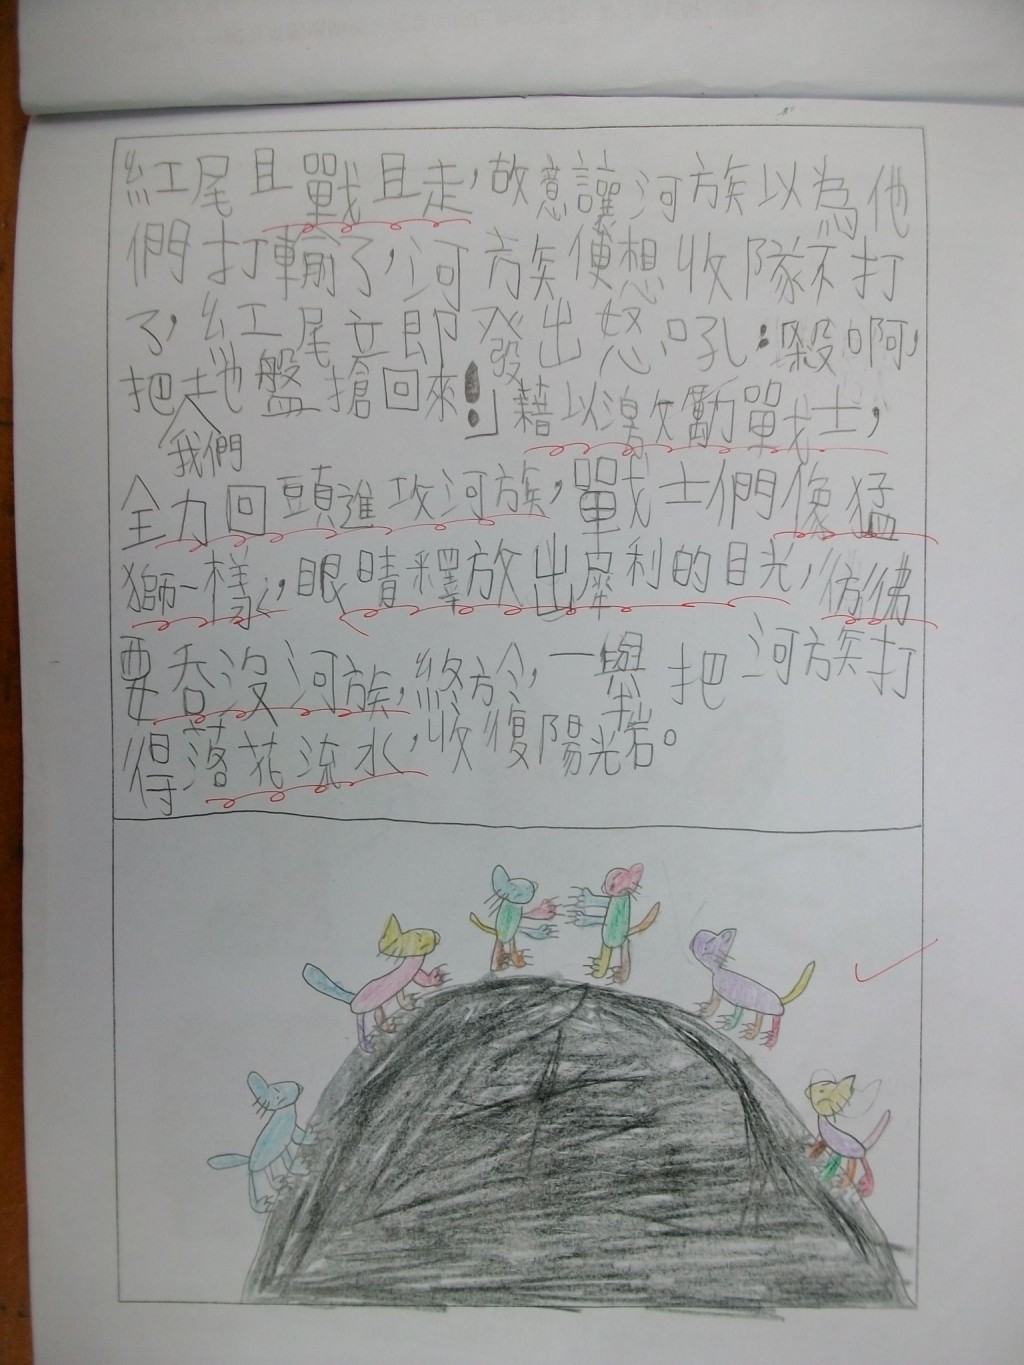 紅尾且戰且走，故意讓河族以為他
們打輸了，河族便想收隊不打
了，紅尾立即發出怒吼：殺啊，
把土地盤搶回來！」藉以激勵戰士，
我們
全力回頭進攻河族，戰士們像猛
獅一樣，眼睛釋放出犀利的目光，彷彿
要吞沒河族，終於，一舉把河族打
得落花流水，收復陽光岩。